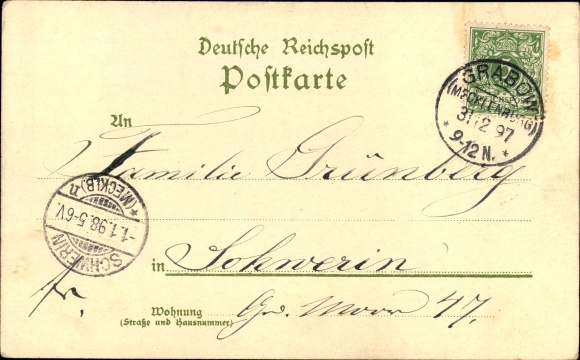 Deutsche Reichspost
Postkarte
GRABOW
(MECKLENBURG)
31 12 97
* 9-12 N. *
An
Familie Grünberg
SCHWERIN
-1.1.98.5-6V.
*(MECKLB) n
in Schwerin
fr.
Wohnung
(Straße und Hausnummer)
Gr. Moor 47.